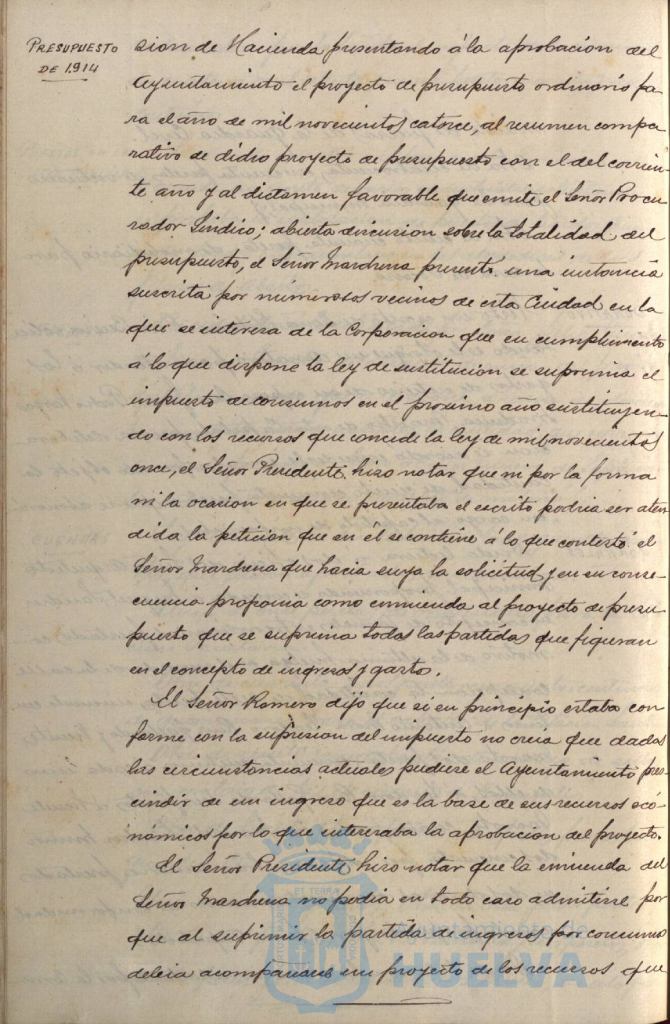 PRESUPUESTO
DE 1.914
sion de Hacienda presentando á la aprobacion del
Ayuntamiento el proyecto de presupuesto ordinario pa-
ra el año de mil novecientos catorce, al resumen compa-
rativo de dicho proyecto de presupuesto con el del corrien-
te año y al dictamen favorable que emite el Señor Procu-
rador Sindico; abierta discusion sobre la totalidad del
presupuesto, el Señor Marchena presentó una instancia
suscrita por numerosos vecinos de esta Ciudad en la
que se interesa de la Corporacion que en cumplimiento
á lo que dispone la ley de sustitucion se suprima el
impuesto de consumos en el proximo año sustituyen-
do con los recursos que concede la ley de mil novecientos
once, el Señor Presidente hizo notar que ni por la forma
ni la ocasion en que se presentaba el escrito podria ser aten
dida la peticion que en él se contiene á lo que contestó el
Señor Marchena que hacia suya la solicitud y en su conse-
cuencia proponia como enmienda al proyecto de presu-
puesto que se suprima todas las partidas que figuran
en el concepto de ingresos y gasto.
El Señor Romero dijo que si en principio estaba con
forme con la supresion del impuesto no creia que dadas
las circunstancias actuales pudiese el Ayuntamiento pres-
cindir de un ingreso que es la base de sus recursos eco-
nómicos por lo que interesaba la aprobacion del proyecto.
El Señor Presidente hizo notar que la enmienda del
Señor Marchena no podia en todo caso admitirse por
que al suprimir la partida de ingresos por consumos
debia acompañarse un proyecto de los recursos que
HUELVA